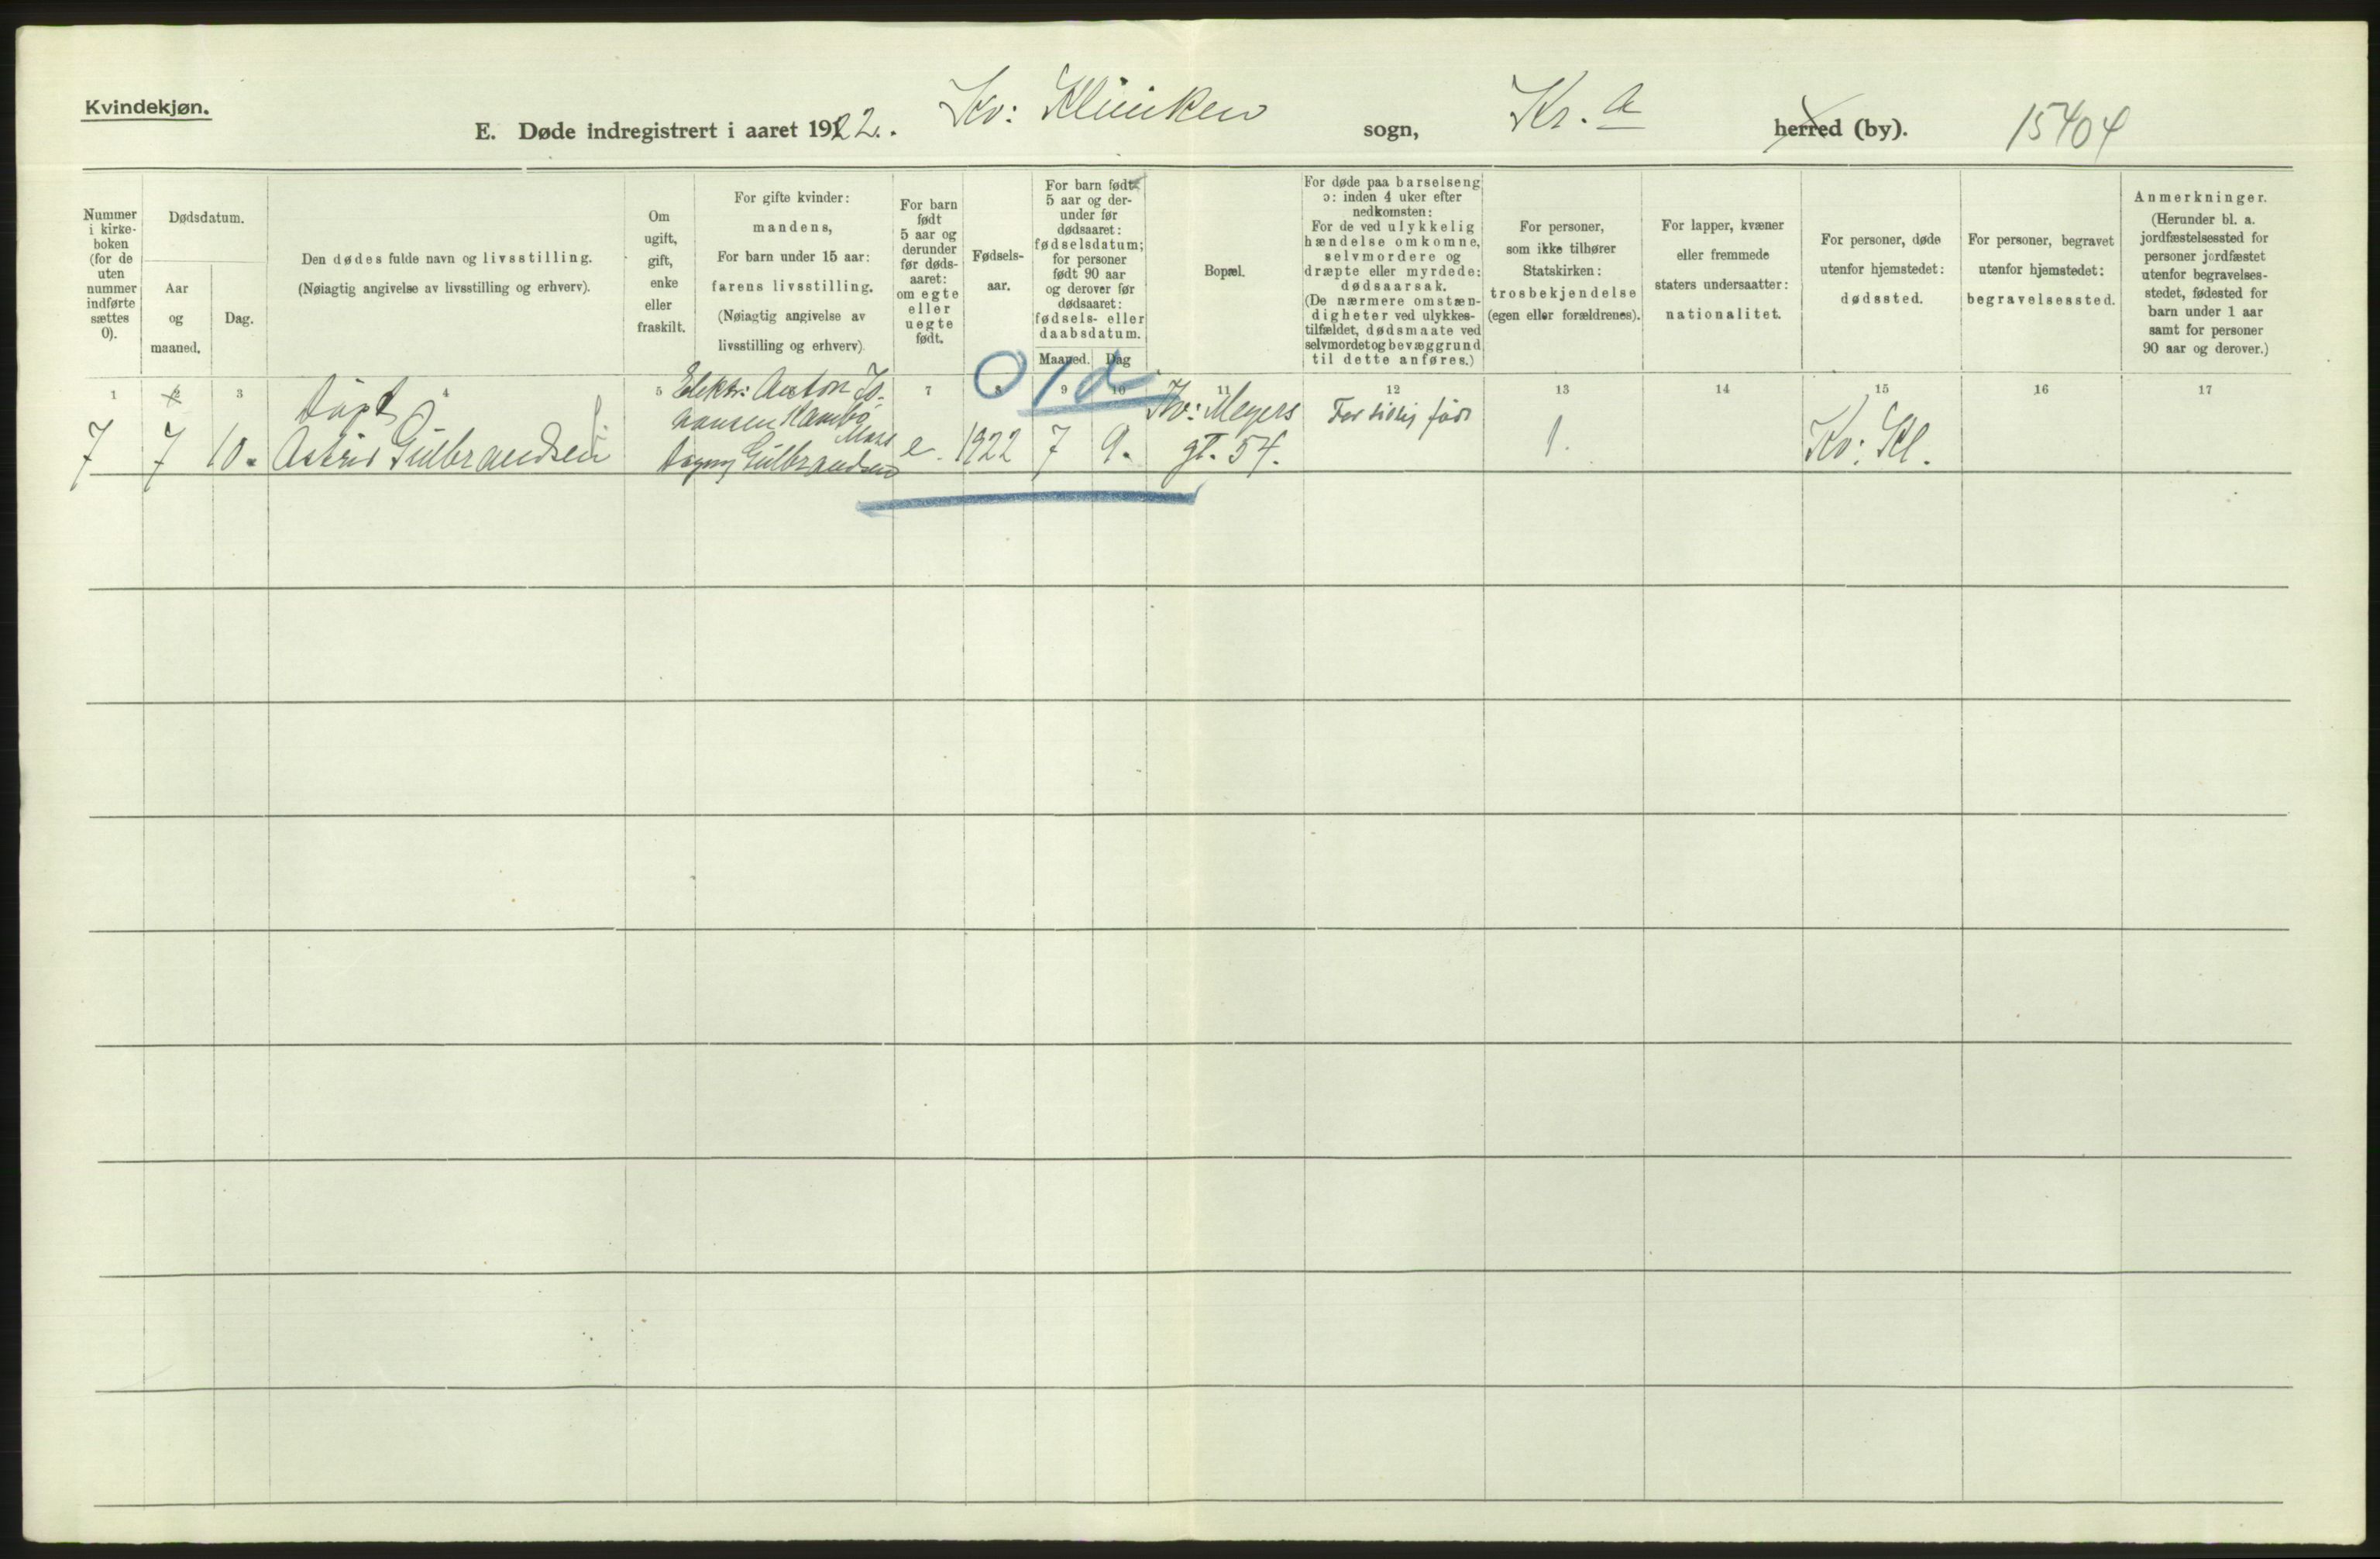 Kvindekjøn.
E. Døde indregistrert i aaret 1922. Kv: Kliniken sogn, Kr.a herred (by). 15404
Nummer
i kirke-
boken
(for de
uten
nummer
indførte
sættes
0).
Dødsdatum.
Aar
og
maaned.
Dag.
Den dødes fulde navn og livsstilling.
(Nøiagtig angivelse av livsstilling og erhverv).
Om
ugift,
gift,
enke
eller
fraskilt.
For gifte kvinder:
mandens,
For barn under 15 aar:
farens livsstilling.
(Nøiagtig angivelse av
livsstilling og erhverv).
For barn
født
5 aar og
derunder
før døds-
aaret:
om egte
eller
uegte
født.
Fødsels-
aar.
For barn født
5 aar og der-
under før
dødsaaret:
fødselsdatum;
for personer
født 90 aar
og derover før
dødsaaret:
fødsels- eller
daabsdatum.
Maaned.
Dag
Bopæl.
For døde paa barselseng
ɔ: inden 4 uker efter
nedkomsten:
For de ved ulykkelig
hændelse omkomne,
selvmordere og
dræpte eller myrdede:
dødsaarsak.
(De nærmere omstæn-
digheter ved ulykkes-
tilfældet, dødsmaate ved
selvmordet og bevæggrund
til dette anføres.)
For personer,
som ikke tilhører
Statskirken:
trosbekjendelse
(egen eller forældrenes).
For lapper, kvæner
eller fremmede
staters undersaatter:
nationalitet.
For personer, døde
utenfor hjemstedet:
dødssted.
For personer, begravet
utenfor hjemstedet:
begravelsessted.
Anmerkninger.
(Herunder bl. a.
jordfæstelsessted for
personer jordfæstet
utenfor begravelses-
stedet, fødested for
barn under 1 aar
samt for personer
90 aar og derover.)
1 2 3 4 5 7 8 9 10 11 12 13 14 15 16 17
0 1 d
7
7
10.
Døpt
Astrid Gulbrandsen
Elektr: Anton Jo-
hansen
Dagny Gulbrandsen
e.
1922
7
9.
Kv: Meyers
gt. 54.
For tidlig født
1.
Kv: Kl.